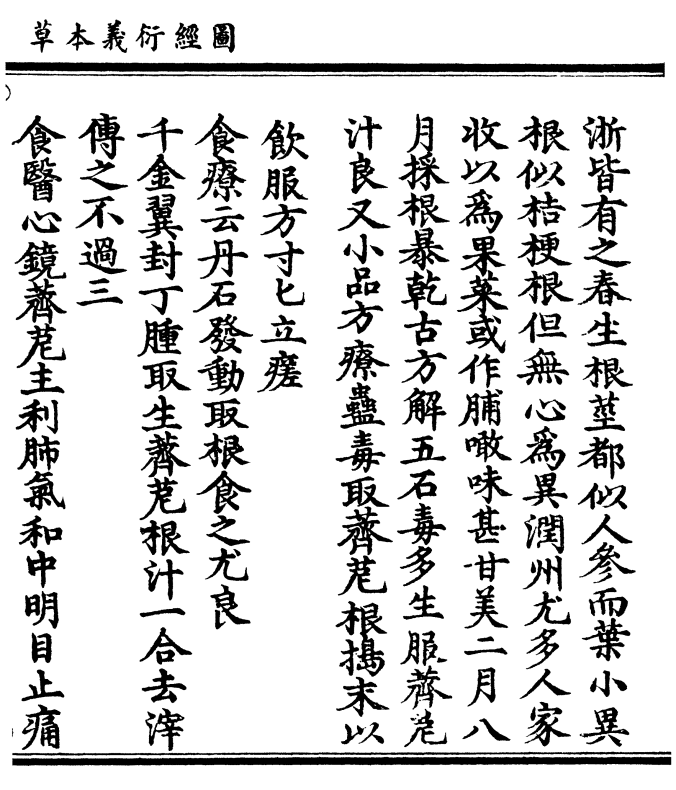 圖經衍義本草
浙皆有之春生根莖都似人參而葉小異
根似桔梗根但無心為異潤州尤多人家
收以為果菜或作脯噉味甚甘美二月八
月採根暴乾古方解五石毒多生服薺苨
汁良又小品方療蠱毒取薺苨根搗末以
飲服方寸匕立瘥
食療云丹石發動取根食之尤良
千金翼封丁腫取生薺苨根汁一合去滓
傅之不過三
食醫心鏡薺苨主利肺氣和中明目止痛